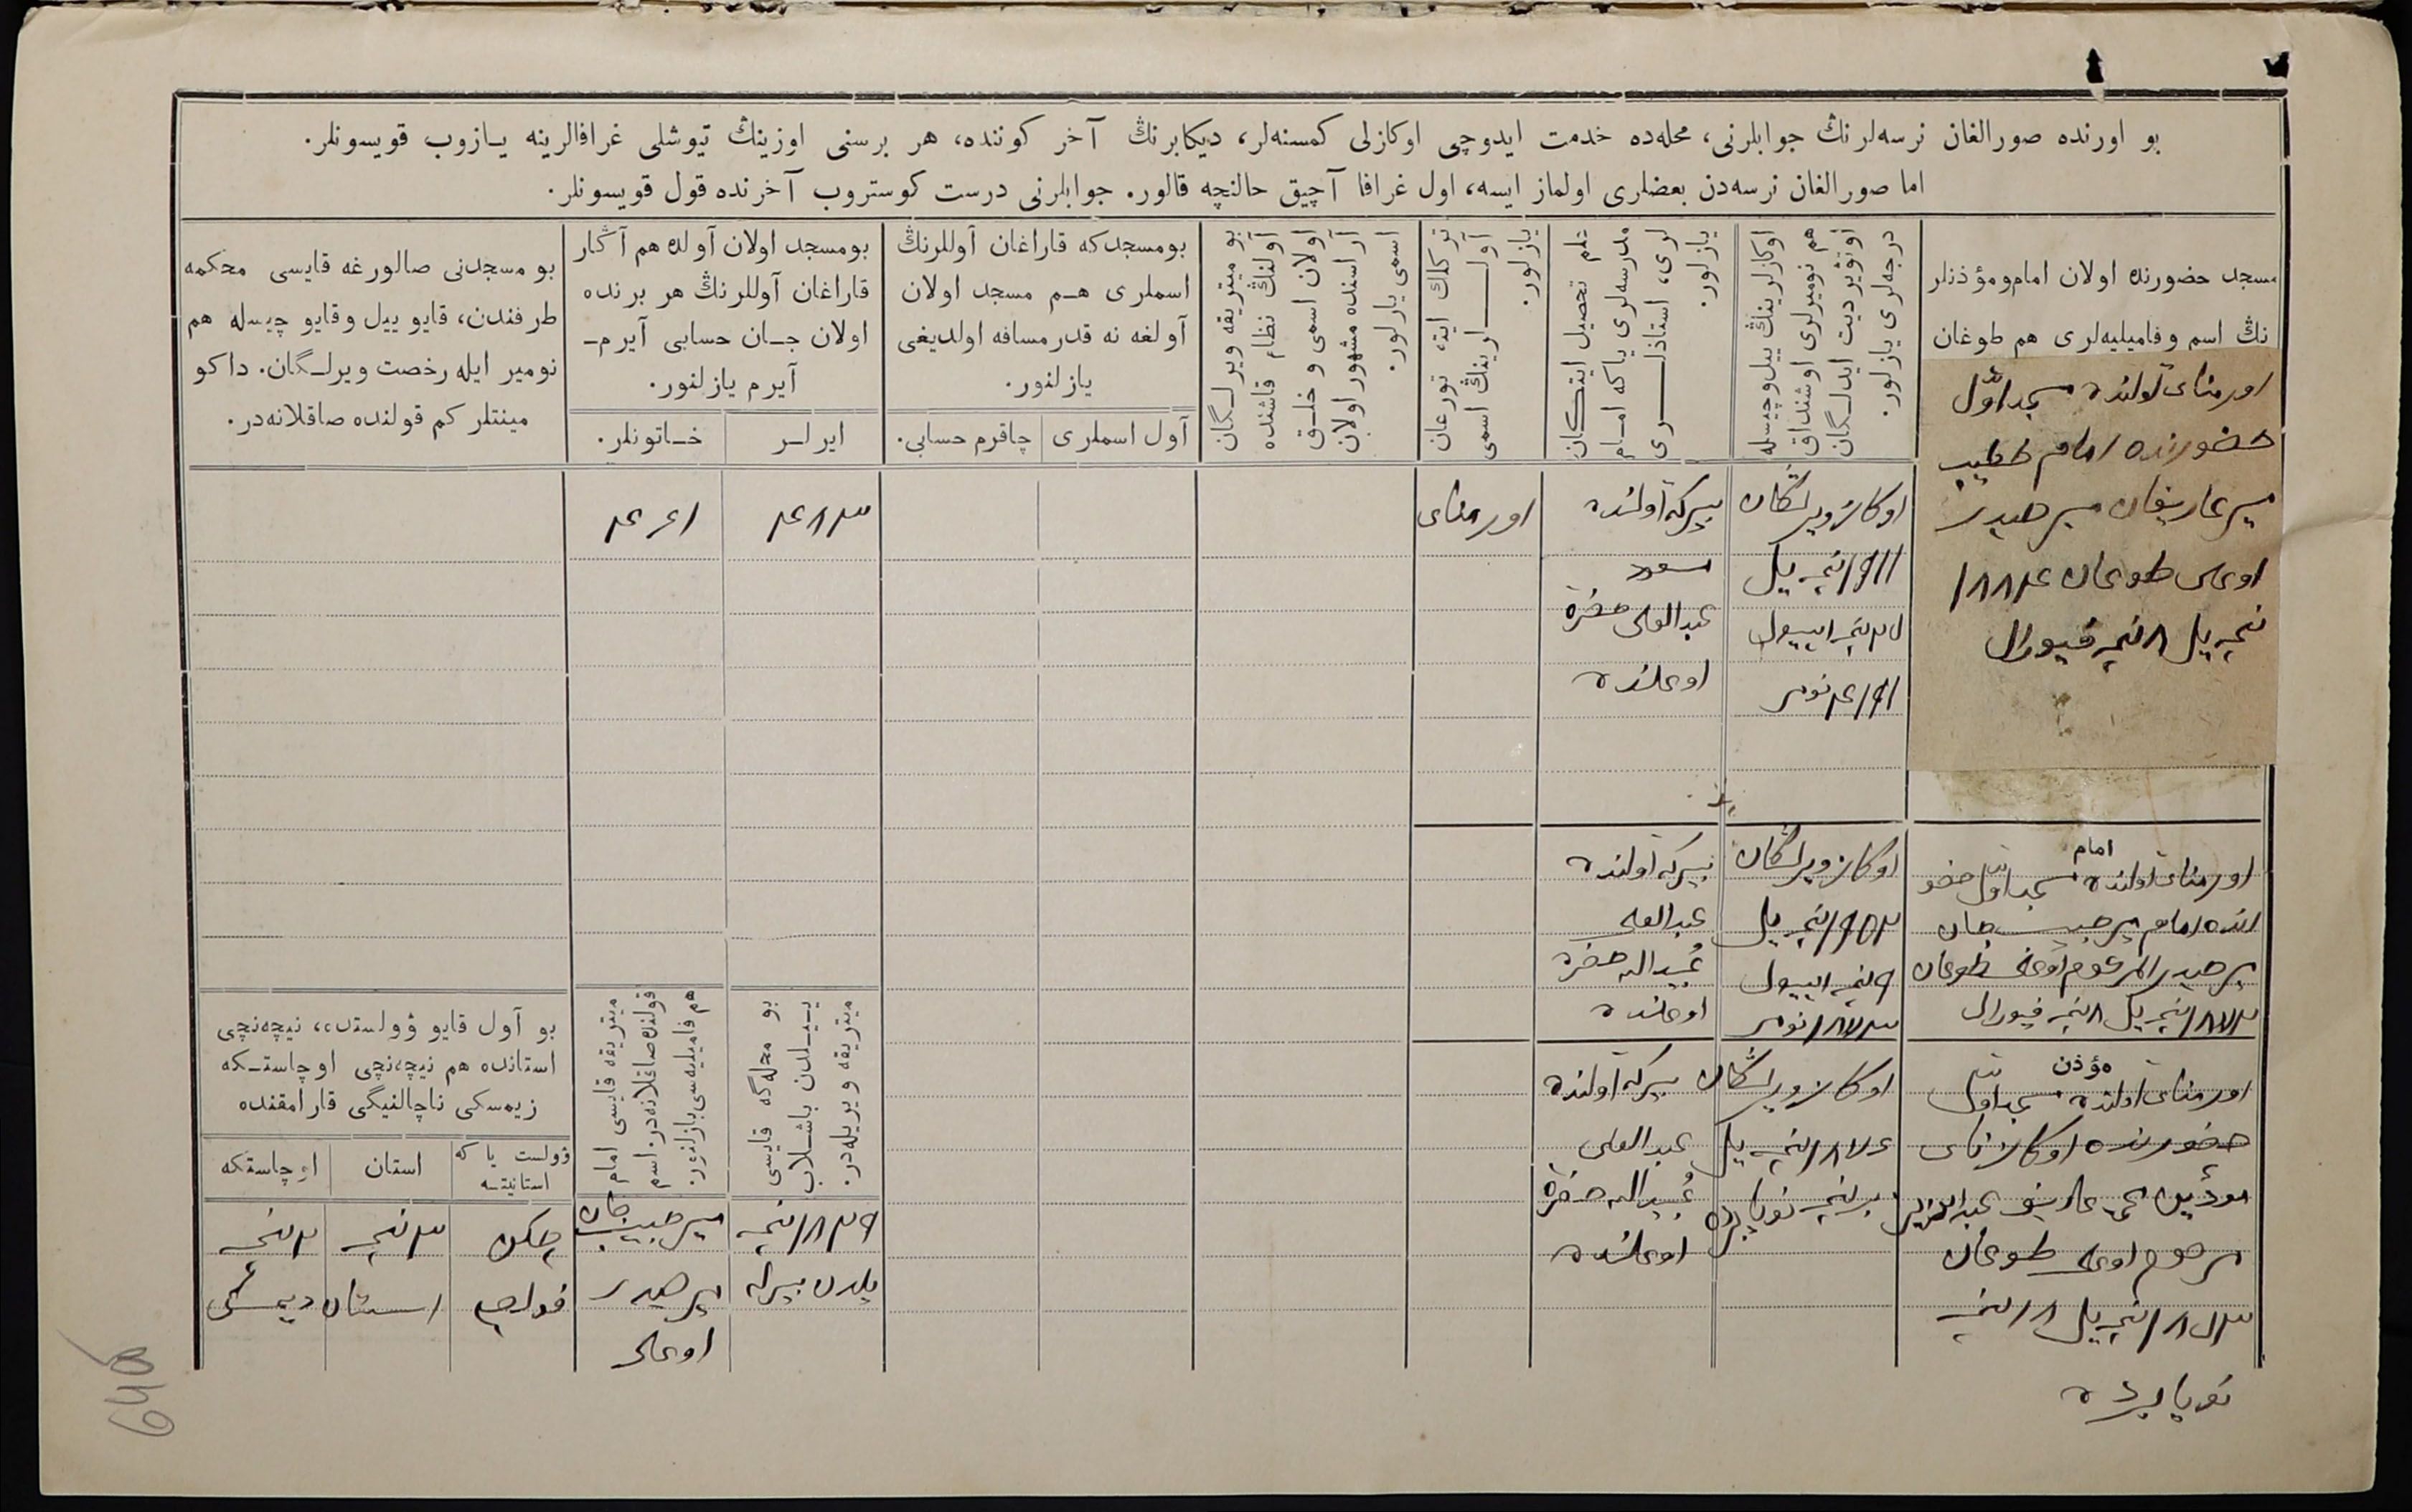 بو اورنده صورالغان نرسه‌لرنڭ جوابلرنی، محله‌ده خدمت ایدوچی اوکازلی کمسنه‌لر، دیکابرنڭ آخر کوننده، هر برسنی اوزینڭ تیوشلی غرافالرینه یازوب قویسونلر.
اما صورالغان نرسه‌دن بعضلری اولماز ایسه، اول غرافا آچیق حالنچه قالور. جوابلرنی درست کوستروب آخرنده قول قویسونلر.
مسجد حضورنده اولان امام‌ومؤذنلر
نڭ اسم وفامیلیه‌لری هم طوغان
اوکازلرینڭ ییل‌وچیسله
هم نومیرلری اوشنداق
اوتڤیردیت ایدلـگان
درجه‌لری یازلور.
علم تحصیل ایتـکان
مدرسه‌لری یاکه امـام
لری، استاذلـری
یازلور.
ترکلك ایته تورغان
آولـلرینڭ اسمی
یازلور.
بو میتریقه ویرلـگان
آولنڭ نظام قاشنده
اولان اسمی و خلـق
آراسنده مشهور اولان
اسمی یازلور.
بومسجدکه قاراغان آوللرنڭ
اسملری هـم مسجد اولان
آولغه نه قدر مسافه اولدیغی
یازلنور.
آول اسملری
چاقرم حسابی.
بومسجد اولان آولده هم آڭار
قاراغان آوللرنڭ هر برنده
اولان جـان حسابی آیرم-
آیرم یازلنور.
ایرلـر
خـاتونلر.
بو مسجدنی صالورغه قایسی محکمه
طرفندن، قایو ییل وقایو چیسله هم
نومیر ایله رخصت ویرلـگان. داکو
مینتلر کم قولنده صاقلانه‌در.
اورمنای آولنده مسجد اوّل
حضورنده امام خطیب
میرعاریفان میرحیدر
اوغلی طوغان ۱۸۸۴
نچی ییل ۸نچی فیورال
اوکاز ویرلگان
۱۹۱۱نچی ییل
نومر
بیرکه آولنده
مسعود
عبدالعلی حضرة
اوغلنده
اورمنای
۴۸۳
۴۶۱
امام
اورمنای آولنده مسجد اول حضو
رنده امام میرحبیب جان
میرحیدر المرحوم اوغلی طوغان
۱۸۷۲نچی ییل ۸نچی فیورال
اوکاز ویرلگان
۱۹۰۲نچی ییل
۹نچی اییول
۱۸۷۳نومر
بیرکه آولنده
عبدالعلی
عُبیدالله حضرة
اوغلنده
مؤذن
اورمنای آولنده مسجد اول
حضورنده اوکازنای
مرحوم اوغلی طوغان
نویابرده
اوکاز ویرلگان
۱۸۷۶نچی ییل
برنچی نویابرده
بیرکه آولنده
عبدالعلی
عُبیدالله حضرة
اوغلنده
بو محله‌گه قایسی
ییـلدن باشـلاب
میتریقه ویریله‌در.
میتریقه قایسی امام
قولنده صاقلانه‌در. اسم
هم فامیلیه‌سی یازلنور.
بو آول قایو ڤولستده، نیچه‌نچی
استانده هم نیچه‌نچی اوچاستـکه
زیمسکی ناچالنیگی قارامقنده
ڤولست یا که
استانیتـه
استان
اوچاستکه
۱۸۲۹نچی
یلدن بیرله
میرحبیب جان
میرحیدر
اوغلی
چکن
فولوص
۳نچی
استان
۲نچی
زیمسکی
64об